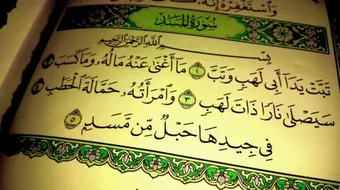 وَاسْتَغْفِرْهُ إِنَّهُ
سُورَةُ المَسَدِ
بِسْمِ اللَّهِ الرَّحْمَٰنِ الرَّحِيمِ
تَبَّتْ يَدَا أَبِي لَهَبٍ وَتَبَّ ١ مَا أَغْنَىٰ عَنْهُ مَالُهُ وَمَا كَسَبَ ٢
سَيَصْلَىٰ نَارًا ذَاتَ لَهَبٍ ٣ وَامْرَأَتُهُ حَمَّالَةَ الْحَطَبِ ٤
فِي جِيدِهَا حَبْلٌ مِّن مَّسَدٍ ٥